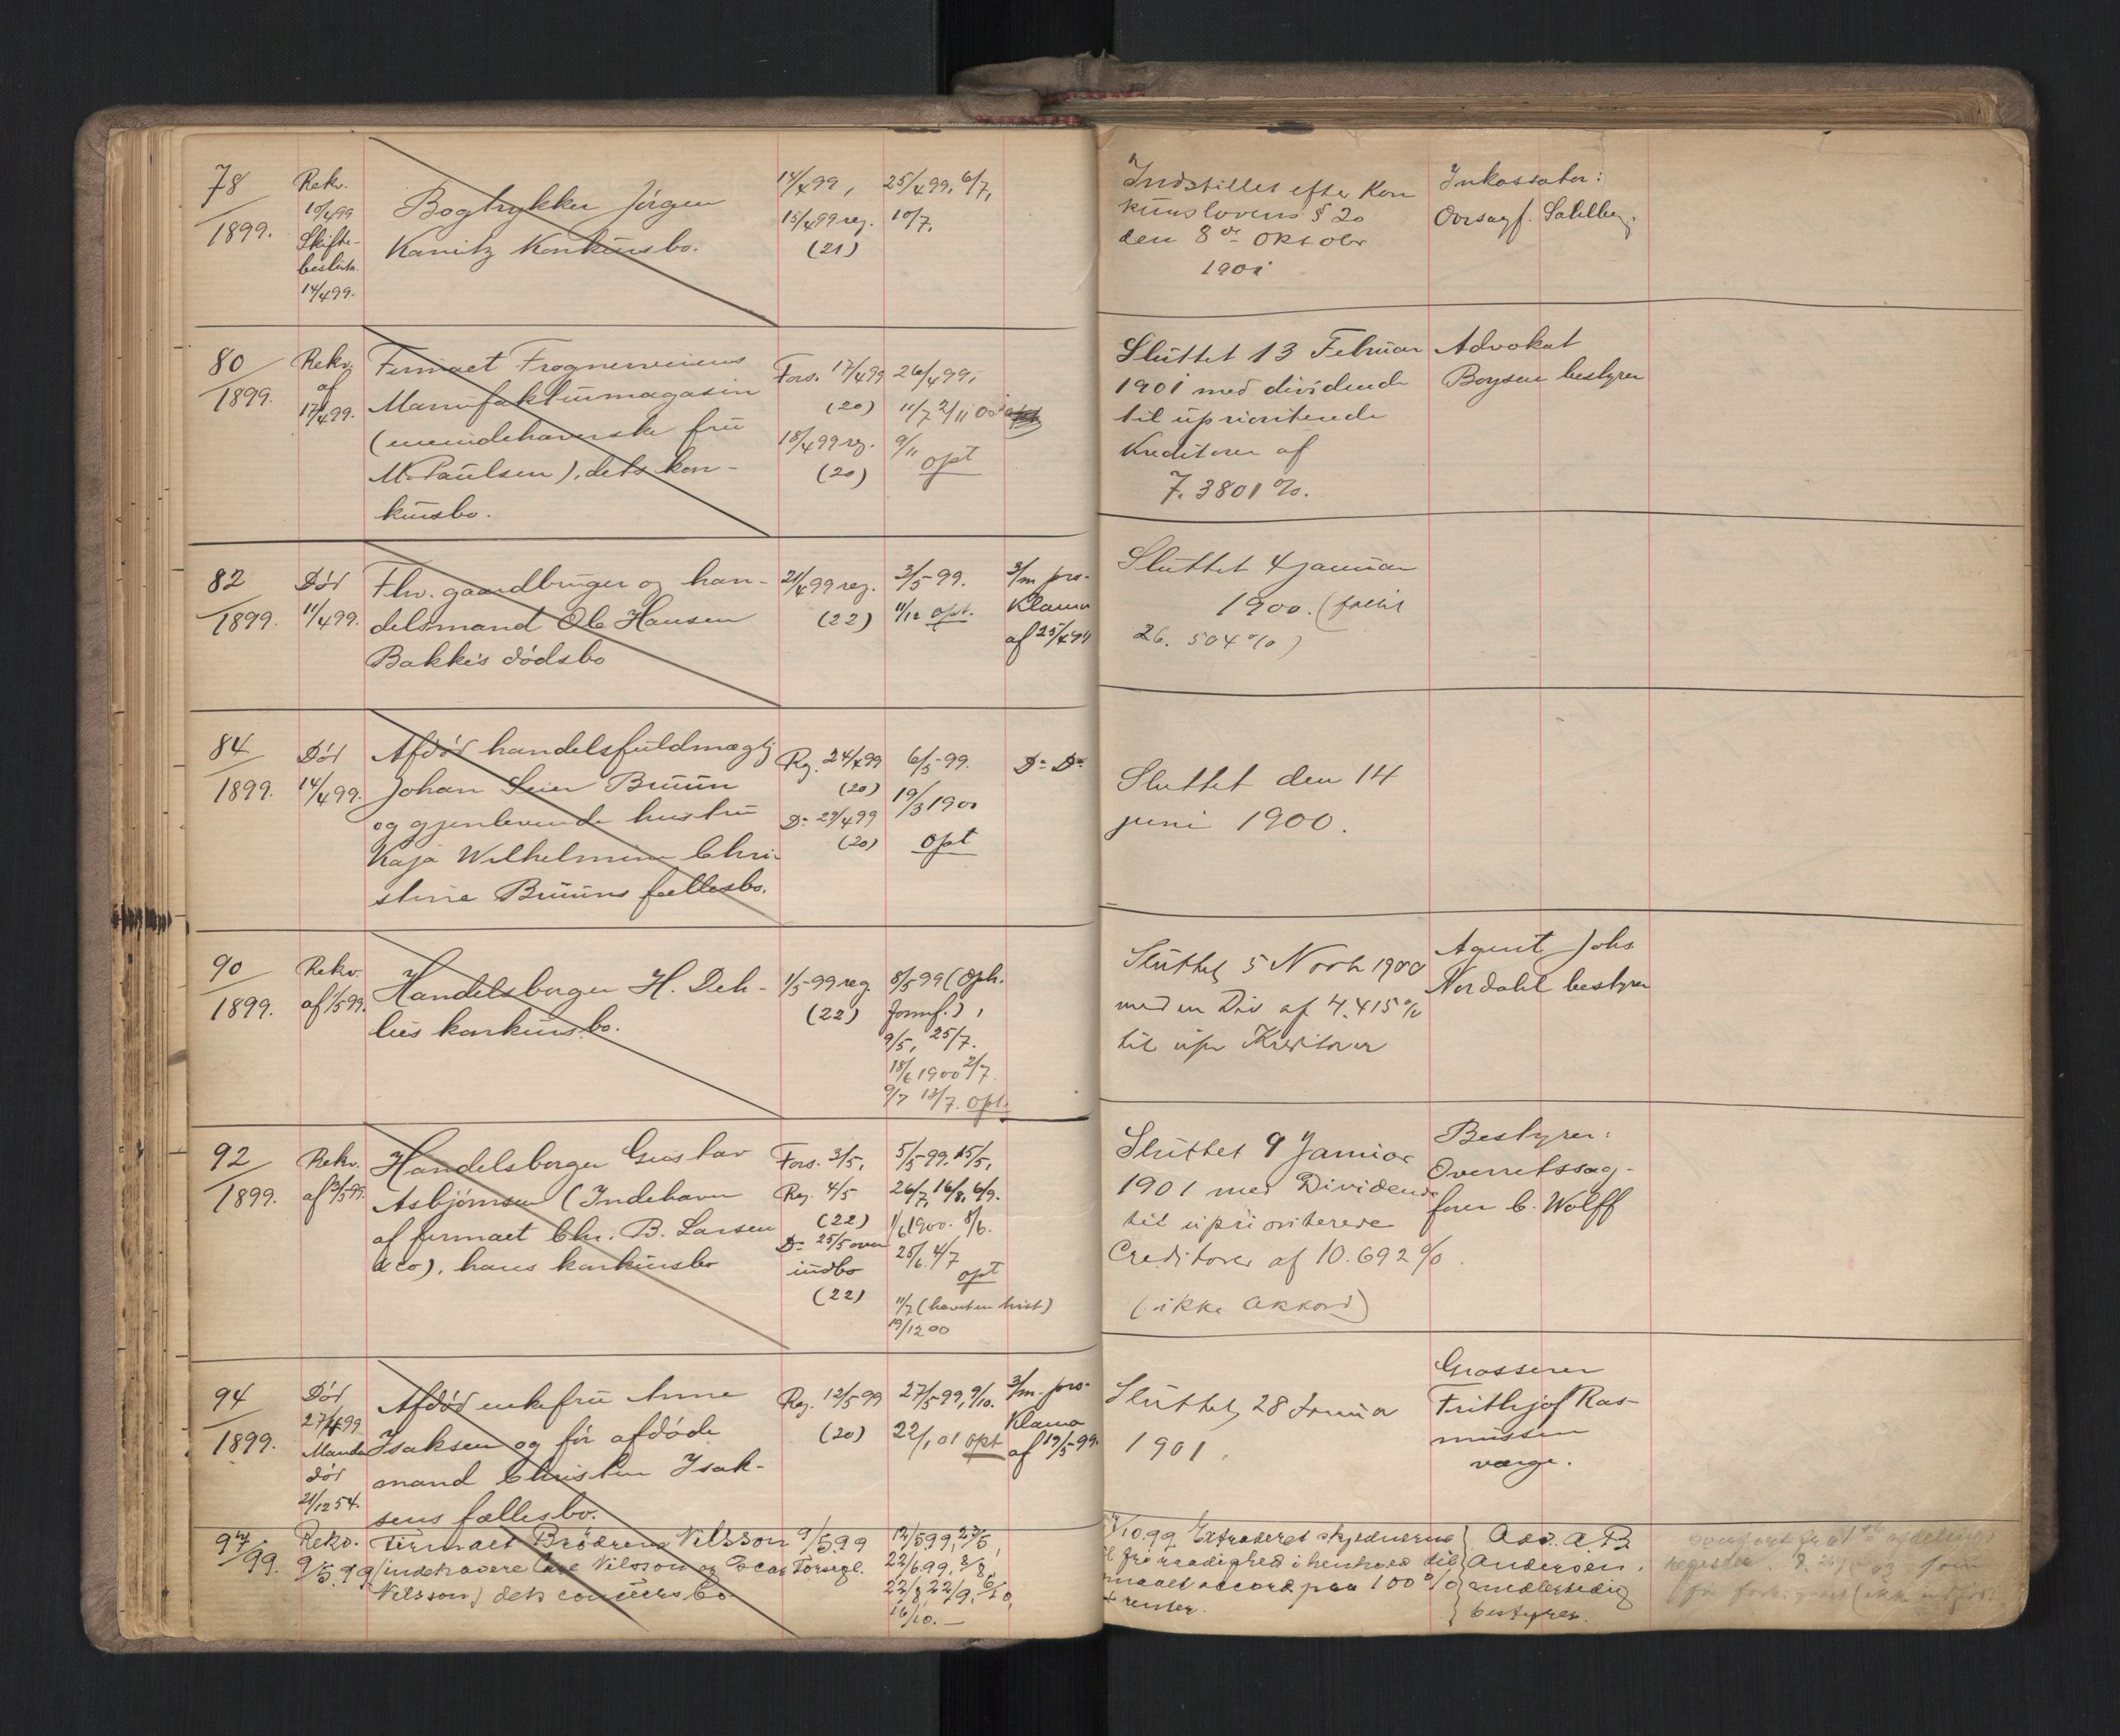 78
1899.
Rekv.
10/4 99
Skifte-
beslutn.
14/4 99.
Bogtrykker Jörgen
Kanitz konkursbo.
14/4 99,
15/4 99 reg.
(21)
25/4 99, 6/7,
10/7,
Indstillet efter Kon
kurslovens § 20
den 8de Oktober
1901
Inkassator:
Ovrsagf. Sahlberg.
80
1899.
Rekv.
af
17/4 99.
Firmaet Frognerveiens
Manufakturmagasin
(eneindehaverske fru
M. Paulsen), dets kon-
kursbo.
Fors. 17/4 99
(20)
18/4 99 reg.
(20)
26/4 99,
11/7 2/11 00
9/11
opt
Sluttet 13 Februar
1901 med dividende
til uprioriterede
Kreditorer af
7.3801 %.
Advokat
Boysen bestyrer
82
1899.
Död
11/4 99.
Fhv. gaardbruger og han-
delsmand Ole Hansen
Bakkes dödsbo
21/4 99 reg.
(22)
3/5 99.
11/12 opt.
3/m pro-
klama
af 25/4 99
Sluttet 4 januar
1900. (
26. 504 %)
84
1899.
Död
14/4 99.
Afdöd handelsfuldmægtig
Johan Seier Bruun
og gjenlevende hustru
Kaja Wilhelmine Chri-
stine Bruuns fællesbo.
Reg. 24/4 99
(20)
Do 29/4 99
(20)
6/5 99.
19/3 1900
opt
Do Do
Sluttet den 14
juni 1900.
90
1899.
Rekv.
af 1/5 99.
Handelsborger H. Deh-
lies konkursbo.
1/5 99 reg.
(22)
8/5 99 (Oph.
formf.),
9/5, 25/7.
18/6 1900 2/7.
9/7 13/7. opt.
Sluttet 5 Novb 1900
med en Div af 4.415 %
til upr Kreditorer
Agent Johs
Nordahl bestyrer
92
1899.
Rekv.
af 3/5 99.
Handelsborger Gustav
Asbjörnsen (Indehaver
af firmaet Chr. B. Larsen
& co), hans konkursbo
Fors. 3/5,
Reg. 4/5
(22)
Do 25/5 over
indbo
(22)
5/5 99, 15/5,
26/7, 16/8, 6/9.
1/6 1900. 8/6.
25/6. 4/7
opt
11/7 (hævet en tvist)
19/12 00
Sluttet 9 Januar
1901 med Dividende
til uprioriterede
Creditorer af 10.692 %.
(ikke akkord)
Bestyrer:
Overretssag-
förer C. Wolff
94
1899.
Död
27/4 99
Manden
död
21/12 54.
Afdöd enkefru Anne
Isaksen og för afdöde
mand Christen Isak-
sens fællesbo.
Reg. 12/5 99
(20)
27/5 99, 9/10.
22/1 01 opt
3/m. pro-
klama
af 19/5 99.
Sluttet 28 Januar
1901.
Grosserer
Frithjof Ras-
mussen
værge.
97.
99.
Rekv.
9/5. 99
Firmaet Brödrene Nilsson
(indehavere Nilsson og Oscar
Nilsson) dets concursbo
9/5. 99
Forsegl.
12/5 99, 23/5,
22/6 99, 8/8,
22/8, 22/9, 6/10,
16/10. —
/10. 99 Extraderet skyldnerne
fri raadighed i henhold til
accord paa 100 %
+ renter.
Adv. A. B
Andersen,
midlertidig
bestyrer.